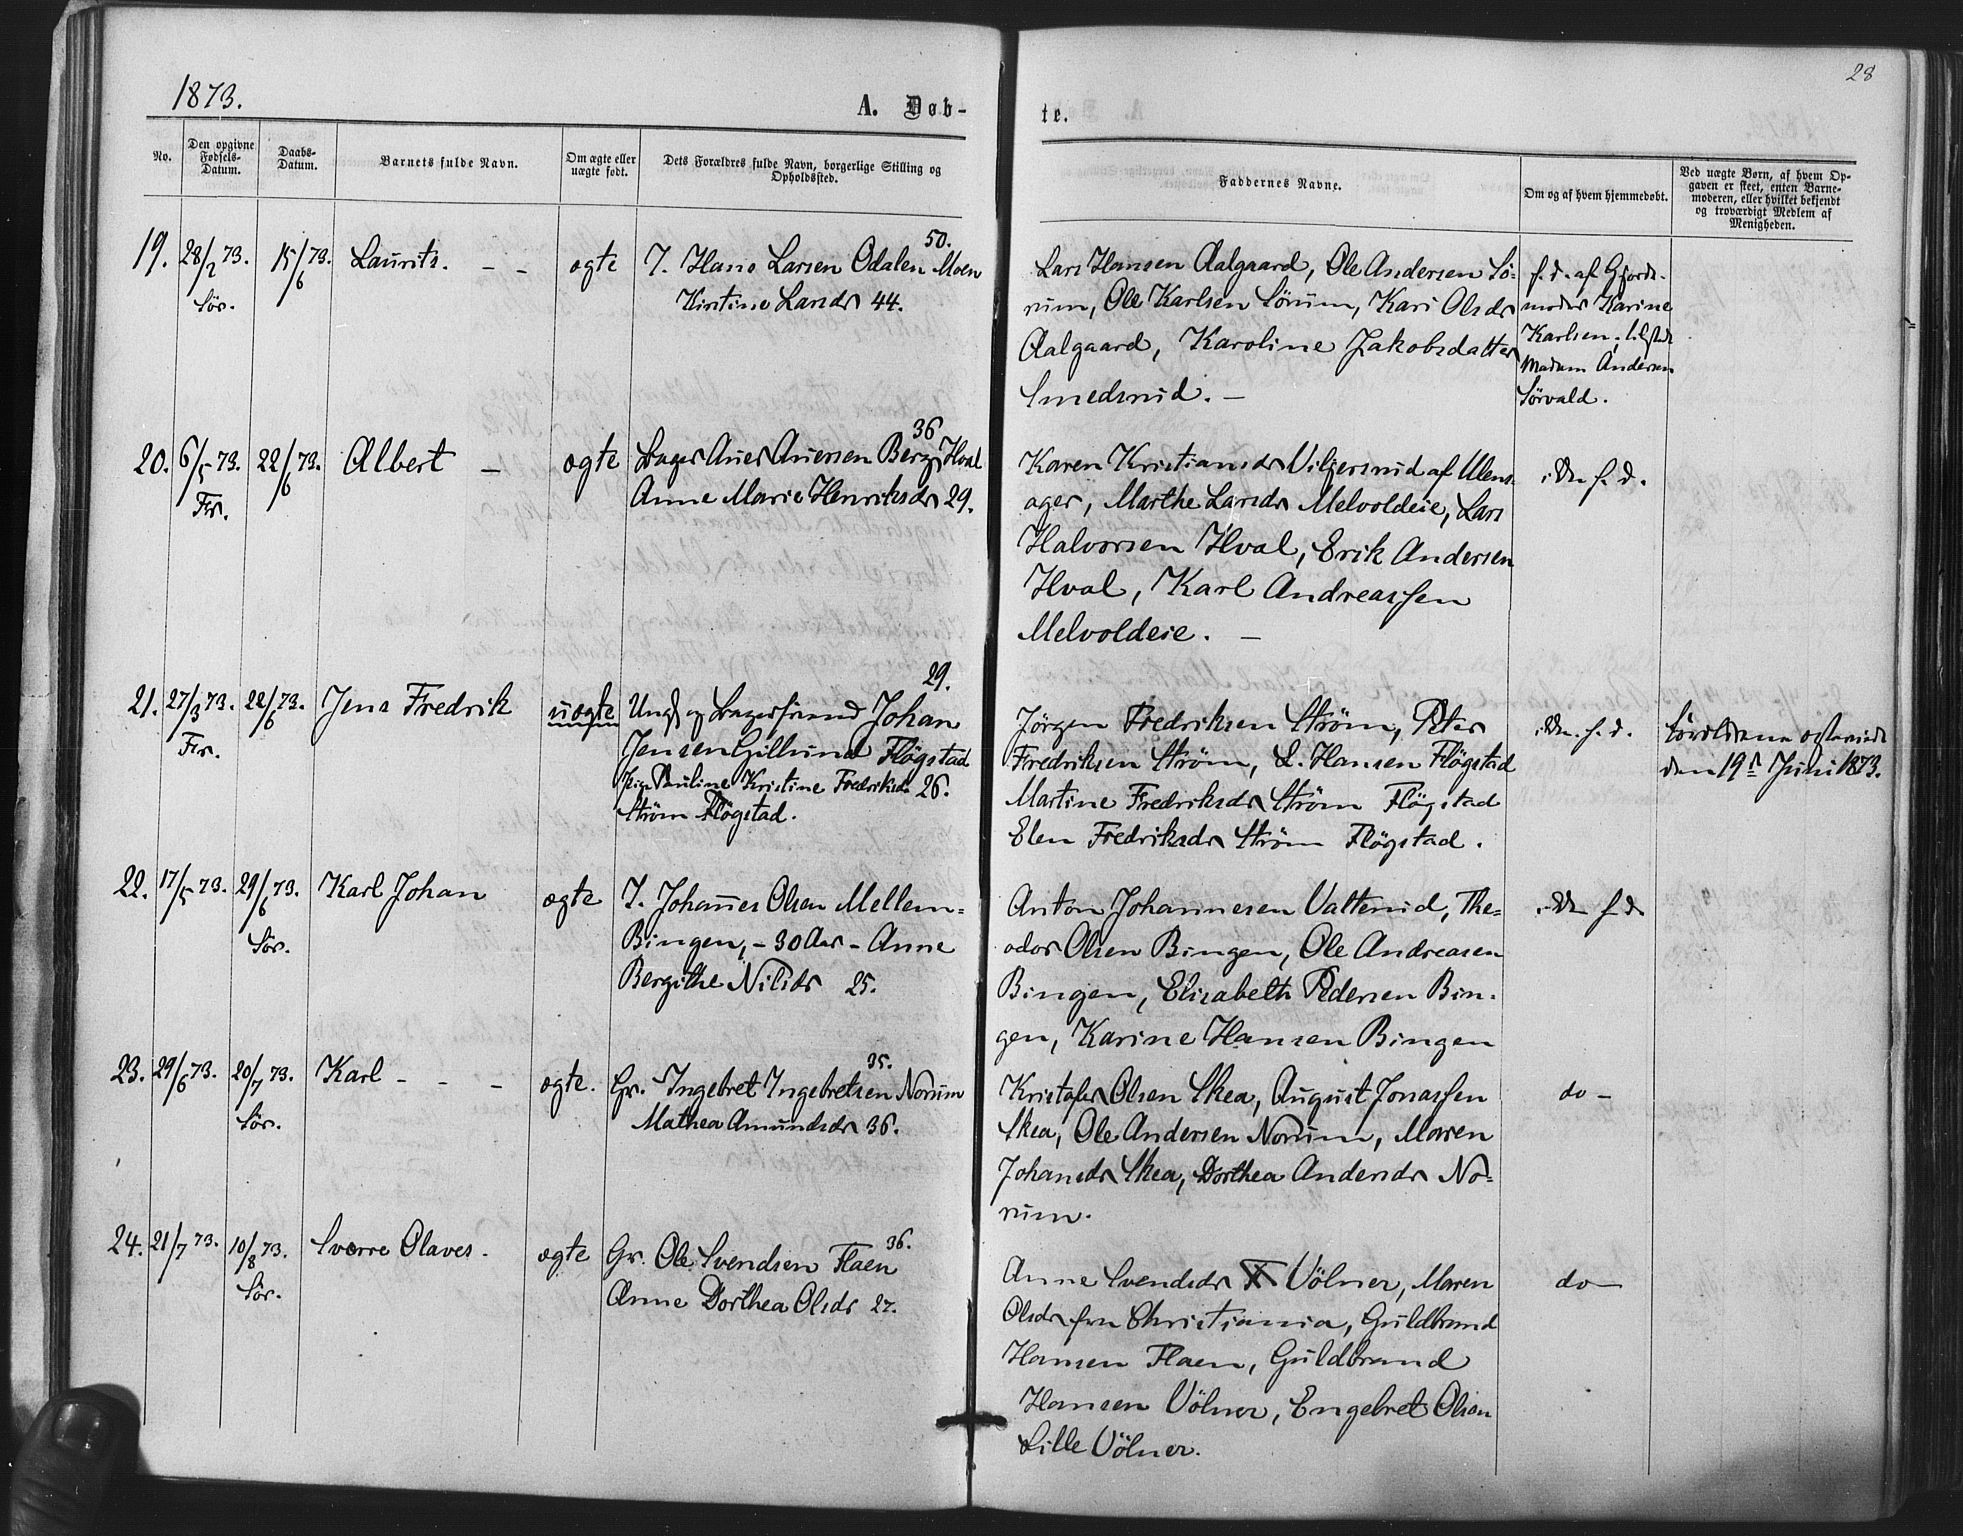 28
1873.
A. Døb-
te.
No.
Den opgivne Fødsels-Datum.
Daabs-Datum.
Barnets fulde Navn.
Om ægte eller uægte født.
Dets Forældres fulde Navn, borgerlige Stilling og Opholdssted.
Faddernes Navne.
Om og af hvem hjemmedøbt.
Ved uægte Børn, af hvem Opgaven er skeet, enten Barnemoderen, eller hvilket bekjendt og troværdigt Medlem af Menigheden.
19. 28/2 73. 15/6 73. Laurits. - - ægte
Sør.
50.
I. Hans Larsen Odalen Moen
Kirstine Larsdr 44.
Lars Hansen Aalgaard, Ole Andersen Sö-
rum, Ole Karlsen Sörum, Kari Olsdr
Aalgaard, Karoline Jakobsdatter
Smedsrud. -
f. d. af Gjords-
moder Karine
Karlsen, tilstede
Madam Andersen
Sörvald.
20. 6/5 73. 22/6 73. Albert - ægte
Fr.
36
Anne Marie Henriksdr 29.
Karen Kristiansdr Viljersrud af Ulens-
ager, Marthe Larsdr Melvoldeie, Lars
Halvorsen Hval, Erik Andersen
Hval, Karl Andreassen
Melvoldeie. -
f. d.
21. 27/3 73. 22/6 73. Jens Fredrik uægte
Fr.
29.
Ungk og Johan
Jensen Gillund Flögstad
Pige Pauline Kristine Fredriksdr 26.
Ström Flögstad.
Jörgen Fredriksen Ström, Peter
Fredriksen Ström, L. Hansen Flögstad
Martine Fredriksdr Ström Flögstad
Elen Fredriksdr Ström Flögstad.
f. d.
Forældrene
den 19de Juni 1873.
22. 17/5 73. 29/6 73. Karl Johan ægte
Sör.
I. Johannes Olsen Mellem-
Bingen, - 30 Aar - Anne
Bergithe Nilsdr 25.
Anton Johannesen Valterud, The-
odor Olsen Bingen, Ole Andreasen
Bingen, Elisabeth Pedersen Bin-
gen, Karine Hansen Bingen
f. d.
23. 29/6 73. 20/7 73. Karl - - - ægte.
Sör.
35.
Gr. Ingebret Ingebretsen Norum
Mathea Amundsdr 36.
Kristofer Olsen Skea, August Jonassen
Skea, Ole Andersen Norum, Maren
Johansdr Skea, Dorthea Andersdr No-
rum.
do -
24. 21/7 73. 10/8 73. Sverre Olaves. ægte
Sör.
36.
Gr. Ole Svendsen Flaen
Anne Dorthea Olsdr 27.
Anne Svendsdr Völner, Maren
Olsdr fra Christiania, Guldbrand
Hansen Flaen, Guldbrand
Hansen Völner, Engebret Olsen
Lille Völner.
do -